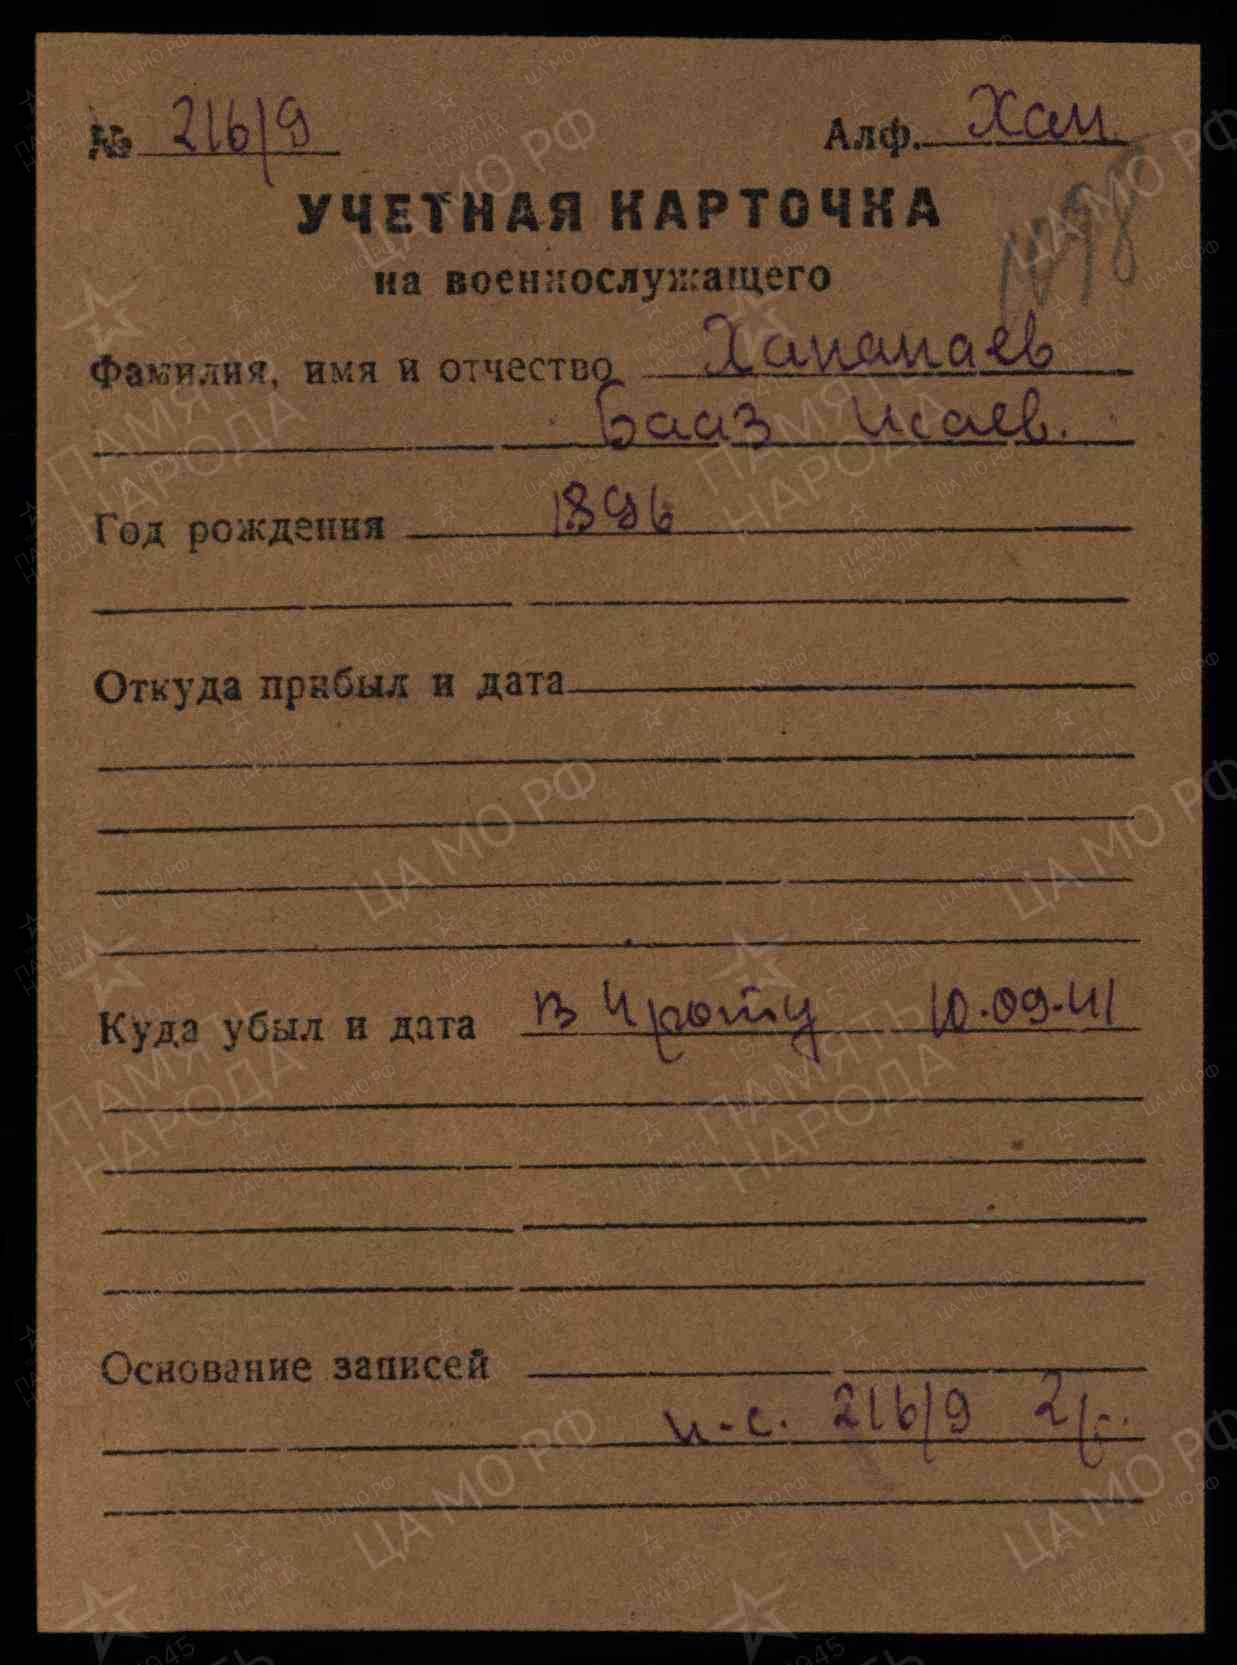 № 216/9 Алф. Хам
УЧЕТНАЯ КАРТОЧКА
на военнослужащего
Фамилия, имя и отчество Хананаев
Бааз Исаев.
Год рождения 1896
Откуда прибыл и дата
Куда убыл и дата в Чроту 10.09.41
Основание записей
и-с. 216/9